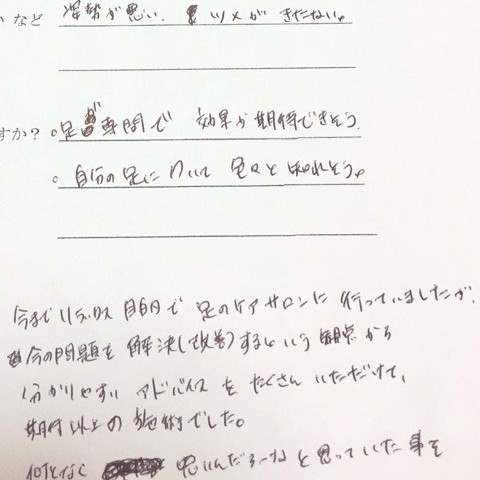 など 姿勢が悪い、ツメがきたない。
すか? 。足が専門で 効果が期待できそう
。自分の足について 色々と知れそう。
今までリラックス目的で足のケアサロンに行っていましたが、
今の問題を解決(改善)するという観点から
分かりやすいアドバイスをたくさんいただけて、
期待以上の施術でした。
何となく 悪いんだろーなと思っていた事を